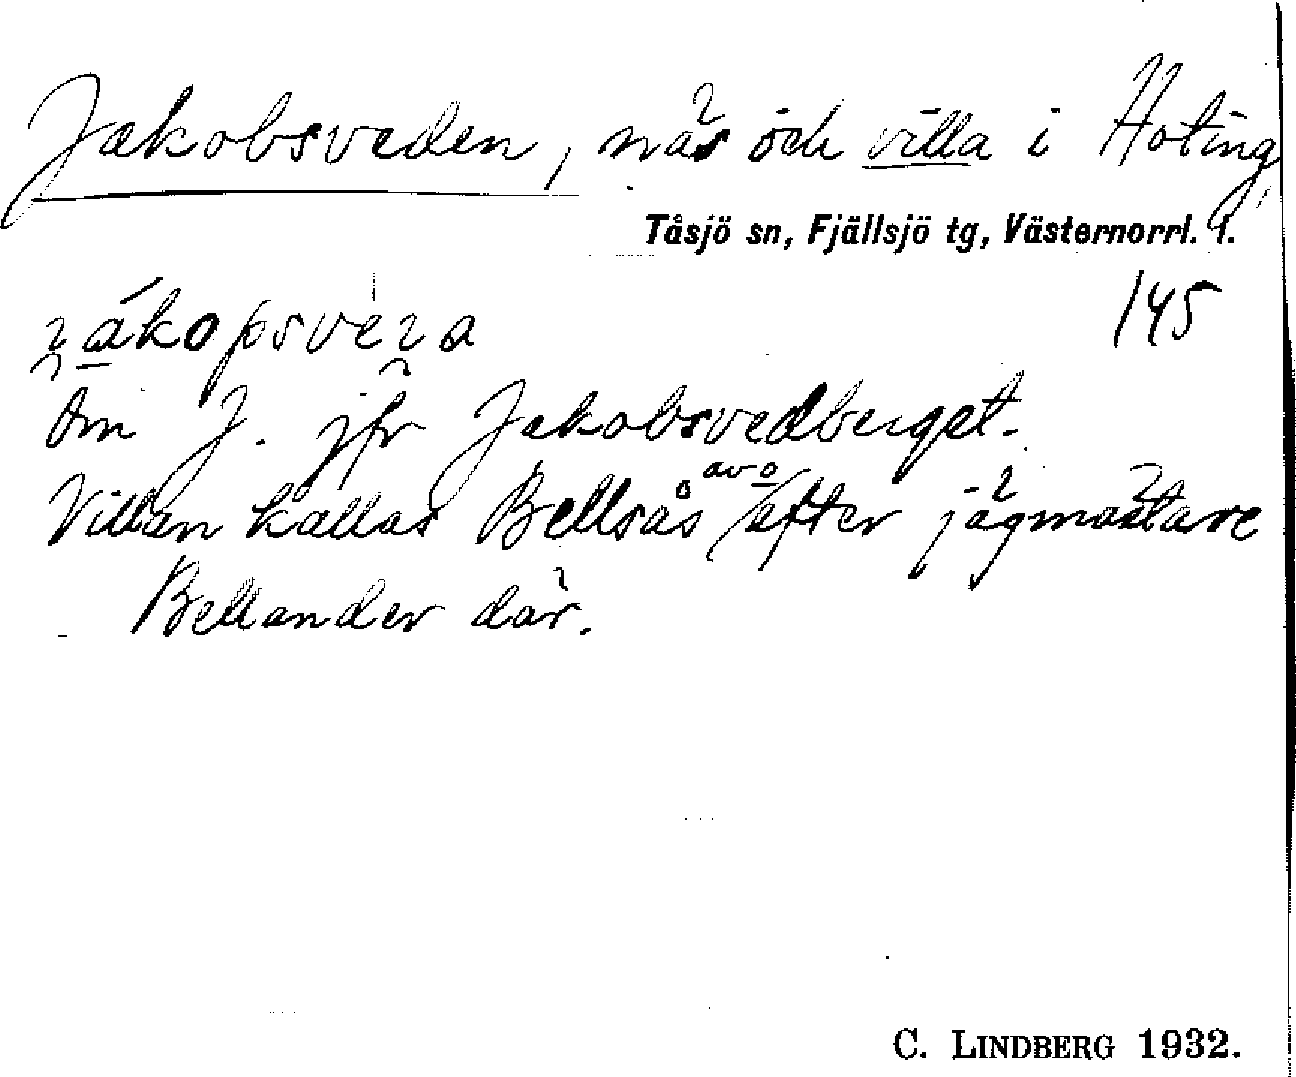 Jakobsveden, näs och villa i Hoting,
Tåsjö sn, Fjällsjö tg, Västernorrl. l.
145
Om J. jfr Jakobsvedberget.
Villan kallas Bellsås efter jägmästare
Bellander där.
C. LINDBERG 1932.